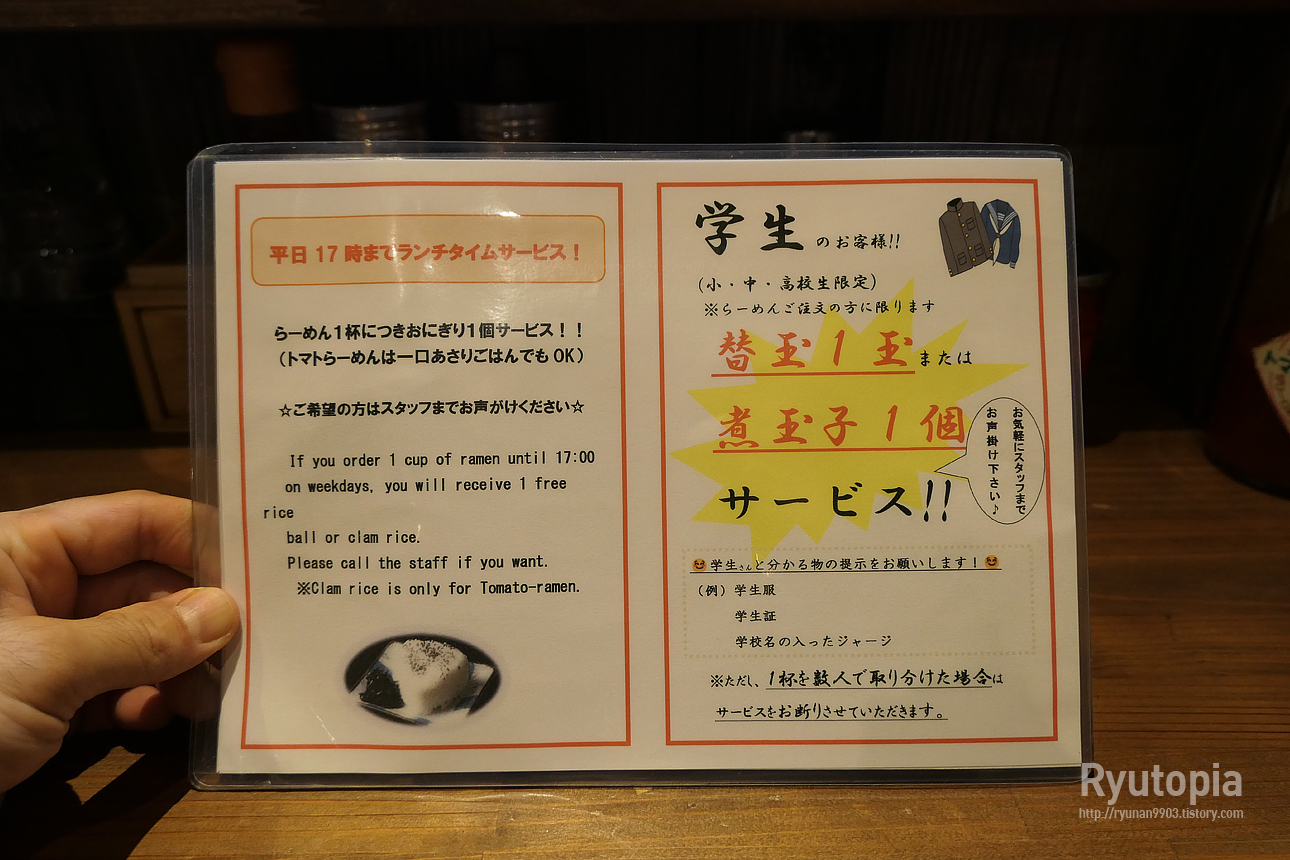 平日 17 時までランチタイムサービス！
らーめん１杯につきおにぎり１個サービス！！
（トマトらーめんは一口あさりごはんでも OK）
☆ご希望の方はスタッフまでお声がけください☆
If you order 1 cup of ramen until 17:00
on weekdays, you will receive 1 free
rice
ball or clam rice.
Please call the staff if you want.
※Clam rice is only for Tomato-ramen.
学生のお客様!!
（小・中・高校生限定）
※らーめんご注文の方に限ります
替玉１玉または
煮玉子１個
サービス!!
お気軽にスタッフまで
お声掛け下さい♪
学生さんと分かる物の提示をお願いします！
（例）学生服
学生証
学校名の入ったジャージ
※ただし、1杯を数人で取り分けた場合は
サービスをお断りさせていただきます。
Ryutopia
http://ryunan9903.tistory.com